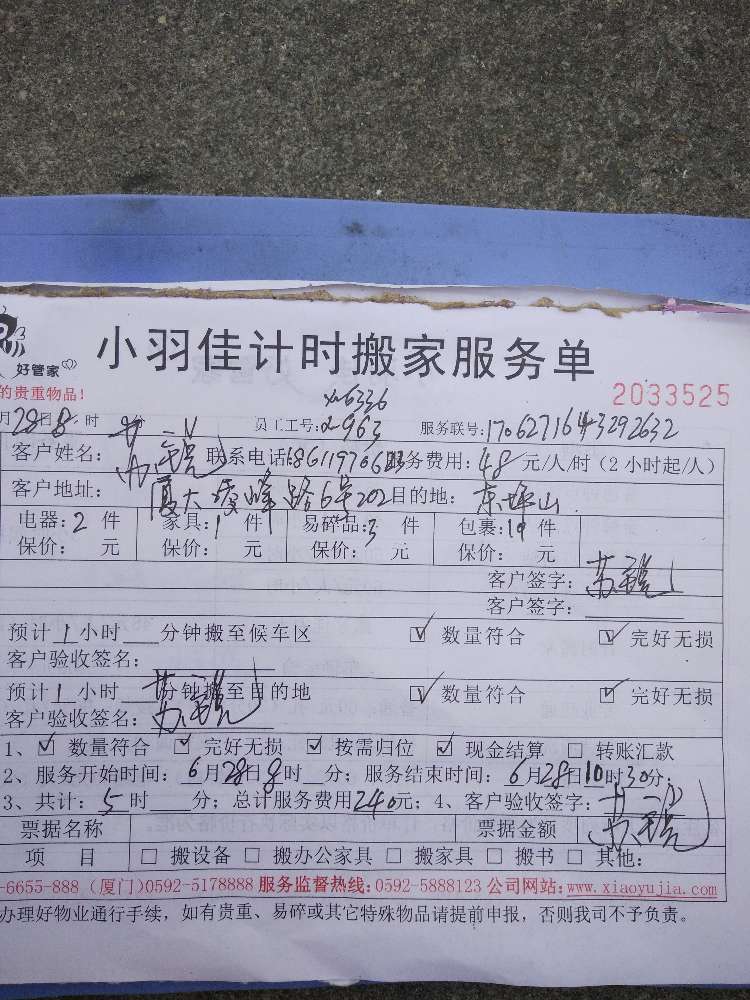 好管家
小羽佳计时搬家服务单
的贵重物品!
2033525
6336
月28日8时 分 员工工号:963 服务联号:1706271643292632
客户姓名: 苏 联系电话:服务费用:48元/人/时(2小时起/人)
客户地址: 厦大凌峰路6号202目的地:东坪山
电器:2件 家具:1件 易碎品:3件 包裹:19件
保价: 元 保价: 元 保价: 元 保价: 元
客户签字:苏
客户签字:
预计1小时 分钟搬至候车区 ☑ 数量符合 ☑ 完好无损
客户验收签名:
预计1小时 分钟搬至目的地 ☑ 数量符合 ☑ 完好无损
客户验收签名:苏
1、☑ 数量符合 ☑ 完好无损 ☑ 按需归位 ☑ 现金结算 □ 转账汇款
2、服务开始时间:6月28日8时 分;服务结束时间:6月28日10时30分;
3、共计:5时 分;总计服务费用240元;4、客户验收签字:苏
票据名称 票据金额
项 目 □ 搬设备 □ 搬办公家具 □ 搬家具 □ 搬书 □ 其他:
-6655-888(厦门)0592-5178888 服务监督热线:0592-5888123 公司网站:www.xiaoyujia.com
办理好物业通行手续,如有贵重、易碎或其它特殊物品请提前申报,否则我司不予负责。